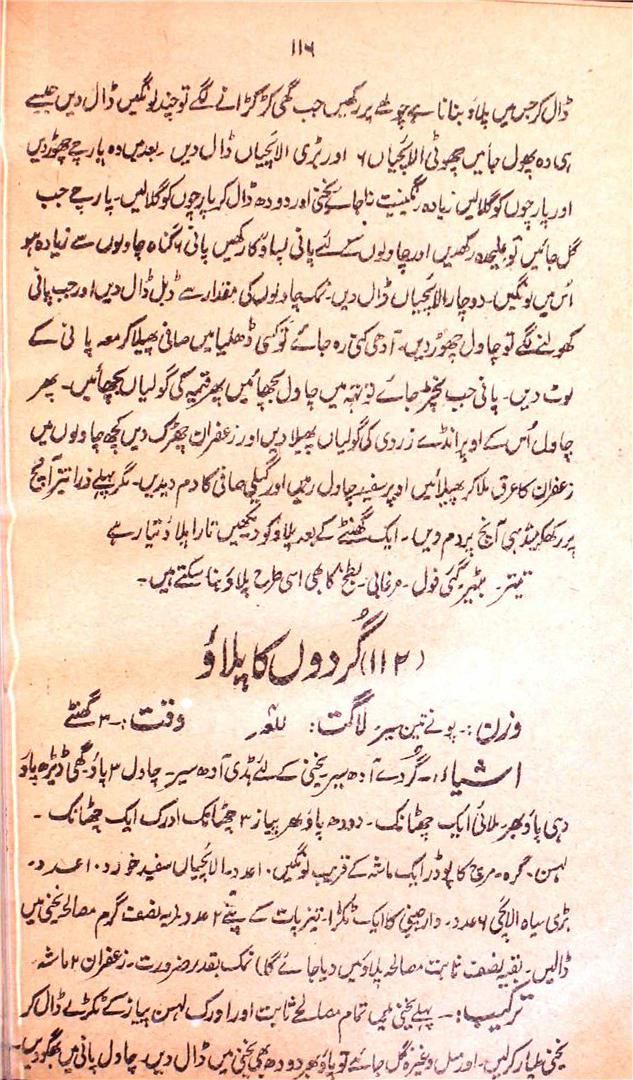 ۱۱۶
ڈال کر جس میں پلاؤ بنانا ہے چولھے پر رکھیں جب گھی کڑکڑانے لگے تو چند لونگیں ڈال دیں جیسے
ہی وہ پھول جائیں چھوٹی الائچیاں ۶ اور بڑی الائچیاں ڈال دیں۔ بعد میں وہ پارچے چھوڑ دیں
اور پارچوں کو گلا لیں زیادہ رنگینیت نا جائے یخنی اور دودھ ڈال کر پارچوں کو گلا لیں۔ پارچے جب
گل جائیں تو علیٰحدہ رکھدیں اور چاولوں کے لئے پانی پساؤ کا رکھیں پانی ۶ گناہ چاولوں سے زیادہ ہو
اُس میں لونگیں۔ دو چار الائچیاں ڈال دیں۔ نمک چاولوں کی مقدار سے ڈبل ڈال دیں اور جب پانی
کھولنے لگے تو چاول چھوڑ دیں۔ آدھی کنی رہ جائے تو کسی ڈھلیا میں صافی پھیلا کر معہ پانی کے
لوٹ دیں۔ پانی جب نچڑ جائے تو تہہ میں چاول بچھائیں پھر قیمہ کی گولیاں بچھائیں۔ پھر
چاول اُس کے اوپر انڈے زردی کی گولیاں پھیلا دیں اور زعفران چھڑک دیں کچھ چاولوں میں
زعفران کا عرق ملا کر پھیلائیں اوپر سفید چاول رہیں اور گیلی صافی کا دم دیدیں۔ مگر پہلے ذرا تیز آنچ
پر رکھکر ٹھنڈی آنچ پر دم دیں۔ ایک گھنٹے کے بعد پلاؤ کو دیکھیں تارا پلاؤ تیار ہے
تیتر۔ بٹیر۔ گنی فول۔ مرغابی۔ بطخ کا بھی اسی طرح پلاؤ بنا سکتے ہیں۔
(۱۱۲) گُردوں کا پلاؤ
وزن:۔ پونے تین سیر لاگت: وقت:۔ ۳ گھنٹے
اشیاء:۔ گُردے آدھ سیر یخنی کے لئے ہڈی آدھ سیر۔ چاول ۳ پاؤ۔ گھی ڈیڑھ پاؤ
دہی پاؤ بھر۔ ملائی ایک چھٹانک۔ دودھ پاؤ بھر پیاز ۳ چھٹانک ادرک ایک چھٹانک۔
لہسن۔ گرہ۔ مرچ کا پوڈر ایک ماشہ کے قریب لونگیں ۱۰ عدد۔ الائچیاں سفید خورد ۱۰ عدد۔
بڑی سیاہ الائچی ۶ عدد۔ دارچینی کا ایک ٹکڑا۔ تیزپات کے پتے ۲ عدد (یہ نصف گرم مصالحہ یخنی میں
ڈالیں۔ بقیہ نصف ثابت مصالحہ پلاؤ میں دیا جائے گا) نمک بقدر ضرورت۔ زعفران ۲ ماشہ
ترکیب:۔ پہلے یخنی میں تمام مصالحے ثابت اور اورک لہسن پیاز کے ٹکڑے ڈال کر
یخنی طیار کر لیں۔ اور مل وغیرہ گل جائے تو پاؤ بھر دودھ بھی یخنی میں ڈال دیں۔ چاول پانی میں بھگو دیں۔